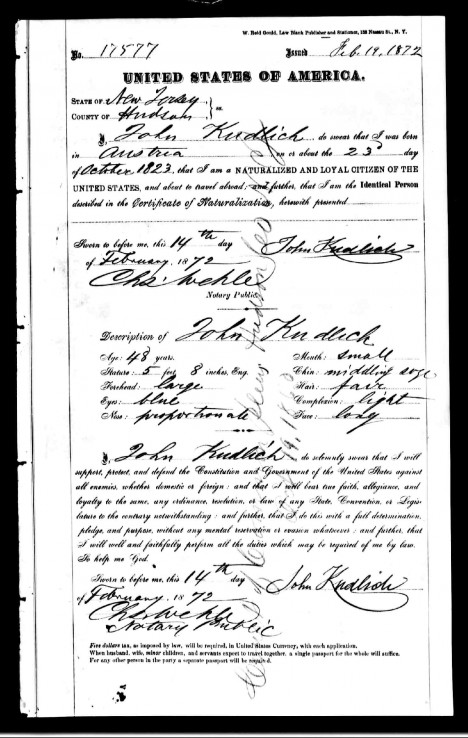 W. Reid Gould, Law Blank Publisher and Stationer, 168 Nassau St., N. Y.
No. 17577 Issued Feb. 19, 1872
UNITED STATES OF AMERICA.
STATE OF New Jersey
COUNTY OF Hudson } ss.
I, John Kudlich do swear that I was born
in Austria on or about the 23d day
of October 1823, that I am a NATURALIZED AND LOYAL CITIZEN OF THE
UNITED STATES, and about to travel abroad; and further, that I am the Identical Person
described in the Certificate of Naturalization, herewith presented
Sworn to before me, this 14th day John Kudlich
of February, 1872
Chs. Wehle
Notary Public.
Description of John Kudlich
Age: 48 years. Mouth: small
Stature: 5 feet 8 inches, Eng. Chin: middling size
Forehead: large Hair: fair
Eyes: blue Complexion: light
Nose: proportionate Face: long
I, John Kudlich, do solemnly swear that I will
support, protect, and defend the Constitution and Government of the United States against
all enemies, whether domestic or foreign; and that I will bear true faith, allegiance, and
loyalty to the same, any ordinance, resolution, or law of any State, Convention, or Legis-
lature to the contrary notwithstanding; and further, that I do this with a full determination,
pledge, and purpose, without any mental reservation or evasion whatsoever; and further, that
I will well and faithfully perform all the duties which may be required of me by law.
So help me God.
Sworn to before me, this 14th day John Kudlich
of February, 1872
Chs. Wehle
Notary Public
Five dollars tax, as imposed by law, will be required, in United States Currency, with each application.
When husband, wife, minor children, and servants expect to travel together, a single passport for the whole will suffice.
For any other person in the party a separate passport will be required.